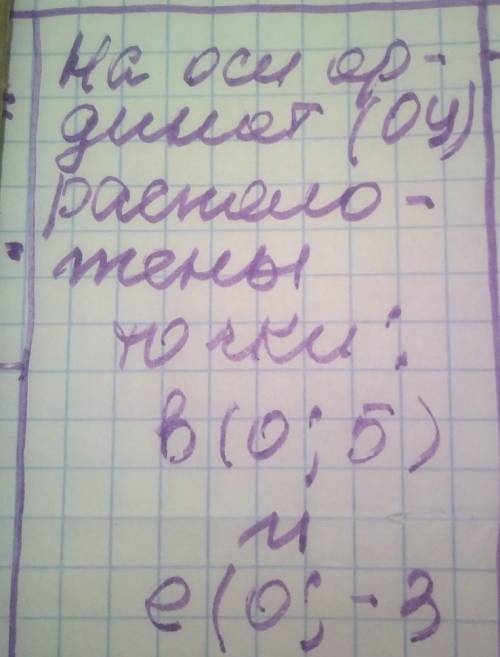 На оси ор-
динат (Оу)
располо-
жены
точки:
в(0; 5)
и
е(0; -3